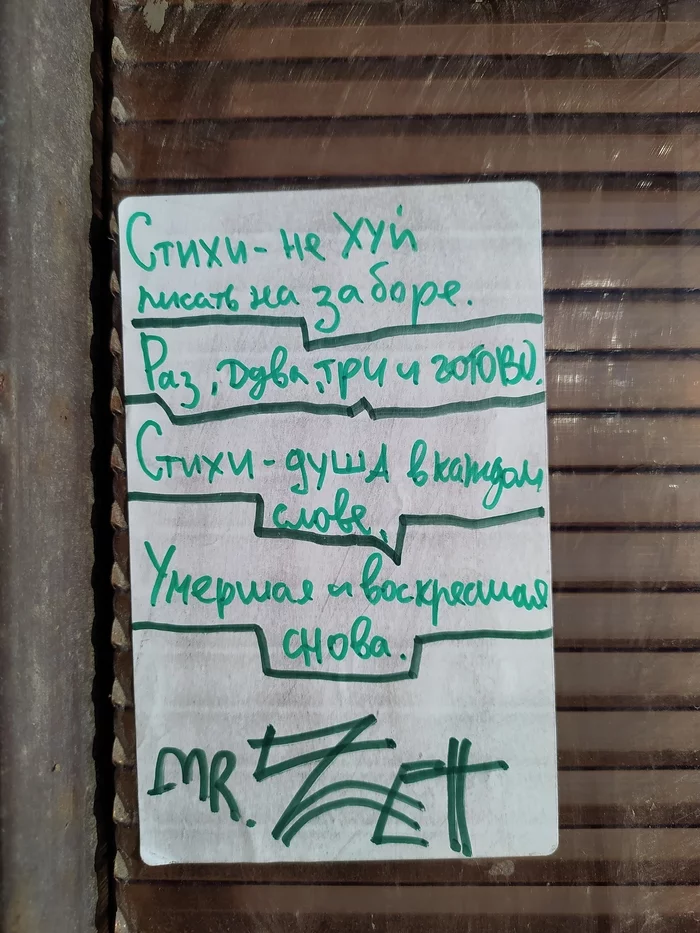 Стихи - не хуй
писать на заборе.
Раз, два, три и готово.
Стихи - душа в каждом
слове,
Умершая и воскресшая
снова.
MR. ZETT